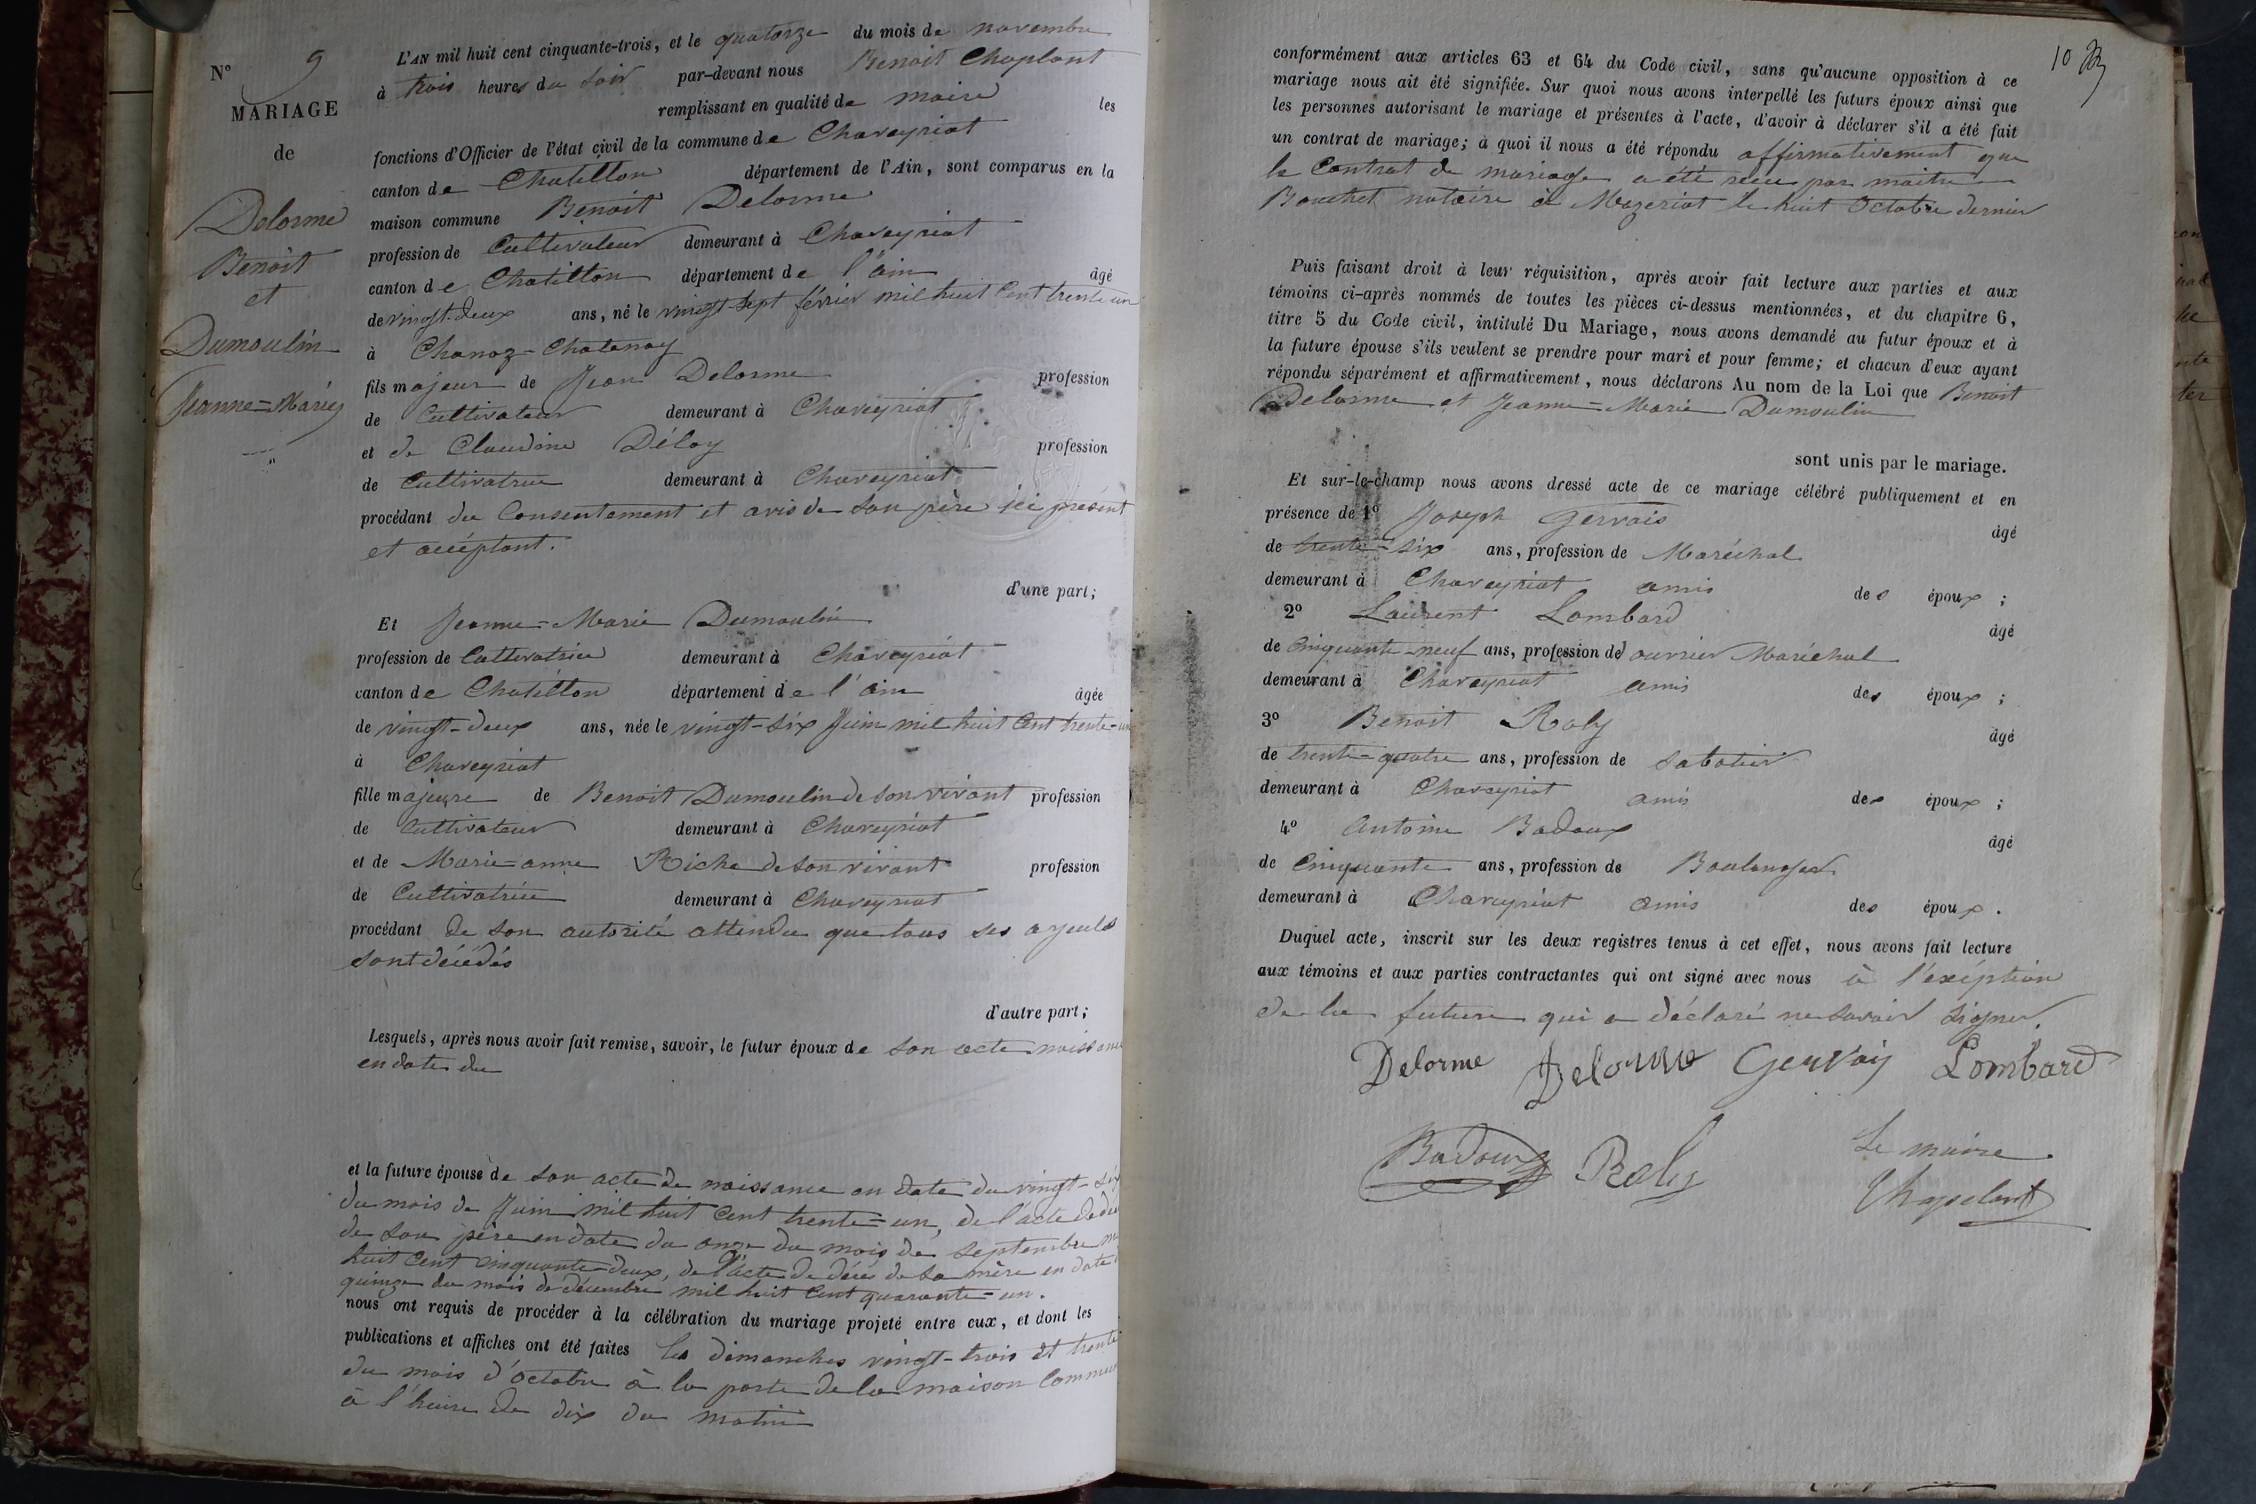 N° 9
MARIAGE
de
Delorme
Benoît
et
Dumoulin
Jeanne=Marie
L'AN mil huit cent cinquante-trois, et le quatorze du mois de novembre
à trois heures du soir par-devant nous Benoit Chaplant
remplissant en qualité de maire les
fonctions d'Officier de l'état civil de la commune de Chaveyriat
canton de Chatillon département de l'Ain, sont comparus en la
maison commune Benoit Delorme
profession de Cultivateur demeurant à Chaveyriat
canton de Chatillon département de l'ain âgé
de vingt-deux ans, né le vingt-sept février mil huit Cent trente un
à Chanoz-Chatenay
fils majeur de Jean Delorme profession
de Cultivateur demeurant à Chaveyriat
et de Claudine Déloy profession
de Cultivatrice demeurant à Chaveyriat
procédant du Consentement et avis de son père ici présent
et acceptant.
d'une part;
Et Jeanne=Marie Dumoulin
profession de Cultivatrice demeurant à Chaveyriat
canton de Chatillon département de l'ain âgée
de vingt-deux ans, née le vingt-six Juin mil huit Cent trente-un
à Chaveyriat
fille majeure de Benoit Dumoulin de son vivant profession
de Cultivateur demeurant à Chaveyriat
et de Marie=anne Riche de son vivant profession
de Cultivatrice demeurant à Chaveyriat
procédant de son autorité attendu que tous ses ayeuls
sont décédés
d'autre part;
Lesquels, après nous avoir fait remise, savoir, le futur époux de son acte naissance
en date du
et la future épouse de son acte de naissance en date du vingt-six
du mois de Juin mil huit Cent trente=un, de l'acte de
de son père en date du onze du mois de septembre
huit Cent cinquante deux, de l'acte de décès de sa mère en date
quinze du mois de décembre mil huit Cent quarante=un.
nous ont requis de procéder à la célébration du mariage projeté entre eux, et dont les
publications et affiches ont été faites les dimanches vingt-trois et trente
du mois d'octobre à la porte de la maison Commune
à l'heure de dix du matin
10
conformément aux articles 63 et 64 du Code civil, sans qu'aucune opposition à ce
mariage nous ait été signifiée. Sur quoi nous avons interpellé les futurs époux ainsi que
les personnes autorisant le mariage et présentes à l'acte, d'avoir à déclarer s'il a été fait
un contrat de mariage; à quoi il nous a été répondu affirmativement que
le Contrat de mariage a été reçu par maître
Bouchet notaire à Mezeriat le huit Octobre dernier
Puis faisant droit à leur réquisition, après avoir fait lecture aux parties et aux
témoins ci-après nommés de toutes les pièces ci-dessus mentionnées, et du chapitre 6,
titre 5 du Code civil, intitulé Du Mariage, nous avons demandé au futur époux et à
la future épouse s'ils veulent se prendre pour mari et pour femme; et chacun d'eux ayant
répondu séparément et affirmativement, nous déclarons Au nom de la Loi que Benoit
Delorme et Jeanne=Marie Dumoulin
sont unis par le mariage.
Et sur-le-champ nous avons dressé acte de ce mariage célébré publiquement et en
présence de 1° Joseph Gervais âgé
de trente-six ans, profession de Maréchal
demeurant à Chaveyriat amis des époux;
2° Laurent Lombard âgé
de Cinquante-neuf ans, profession de ouvrier Maréchal
demeurant à Chaveyriat amis des époux;
3° Benoit Raly âgé
de trente-quatre ans, profession de Sabotier
demeurant à Chaveyriat amis des époux;
4° Antoine Badoux âgé
de Cinquante ans, profession de Boulanger
demeurant à Chaveyriat amis des époux.
Duquel acte, inscrit sur les deux registres tenus à cet effet, nous avons fait lecture
aux témoins et aux parties contractantes qui ont signé avec nous à l'exéption
de la future qui a déclaré ne savoir signer.
Delorme Delorme Gervais Lombard
Badoux Raly Le maire
Chapelant